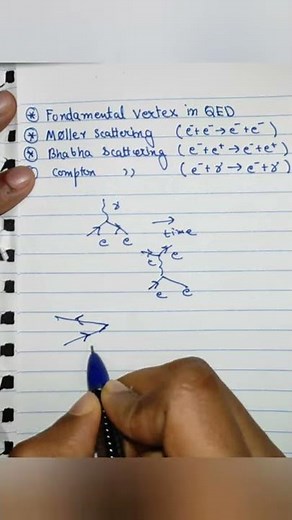 ⊛ Fondamental Vertex in QED
⊛ Møller Scattering (e⁻+e⁻→e⁻+e⁻)
⊛ Bhabha Scattering (e⁻+e⁺→e⁻+e⁺)
Compton ,, (e⁻+γ→e⁻+γ)
γ
e e
time
e e
e e